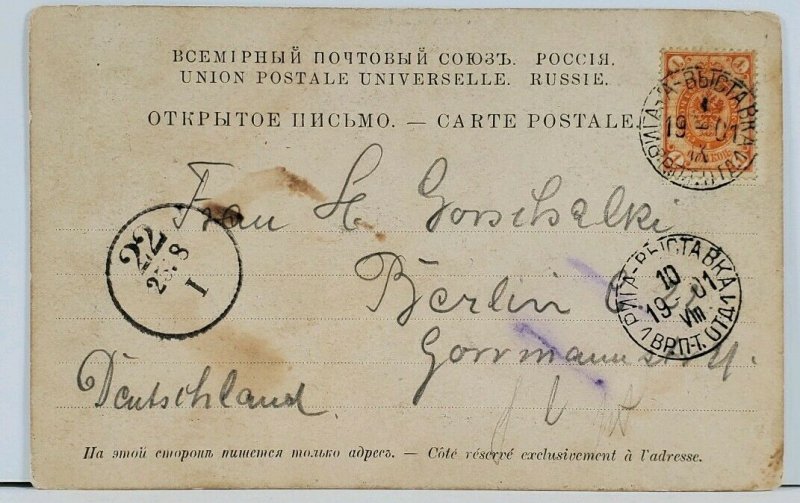 ВСЕМІРНЫЙ ПОЧТОВЫЙ СОЮЗЪ. РОССІЯ.
UNION POSTALE UNIVERSELLE. RUSSIE.
ОТКРЫТОЕ ПИСЬМО. — CARTE POSTALE.
РИГА-ВЫСТАВКА
19 01
Frau H. Gorschalki
22
25/8
I
Berlin
РИГА-ВЫСТАВКА
10
19 01
VIII
1 ВР.П-Т. ОТД.
Gormannstr.
Deutschland.
На этой сторонѣ пишется только адресъ. — Côté réservé exclusivement à l'adresse.